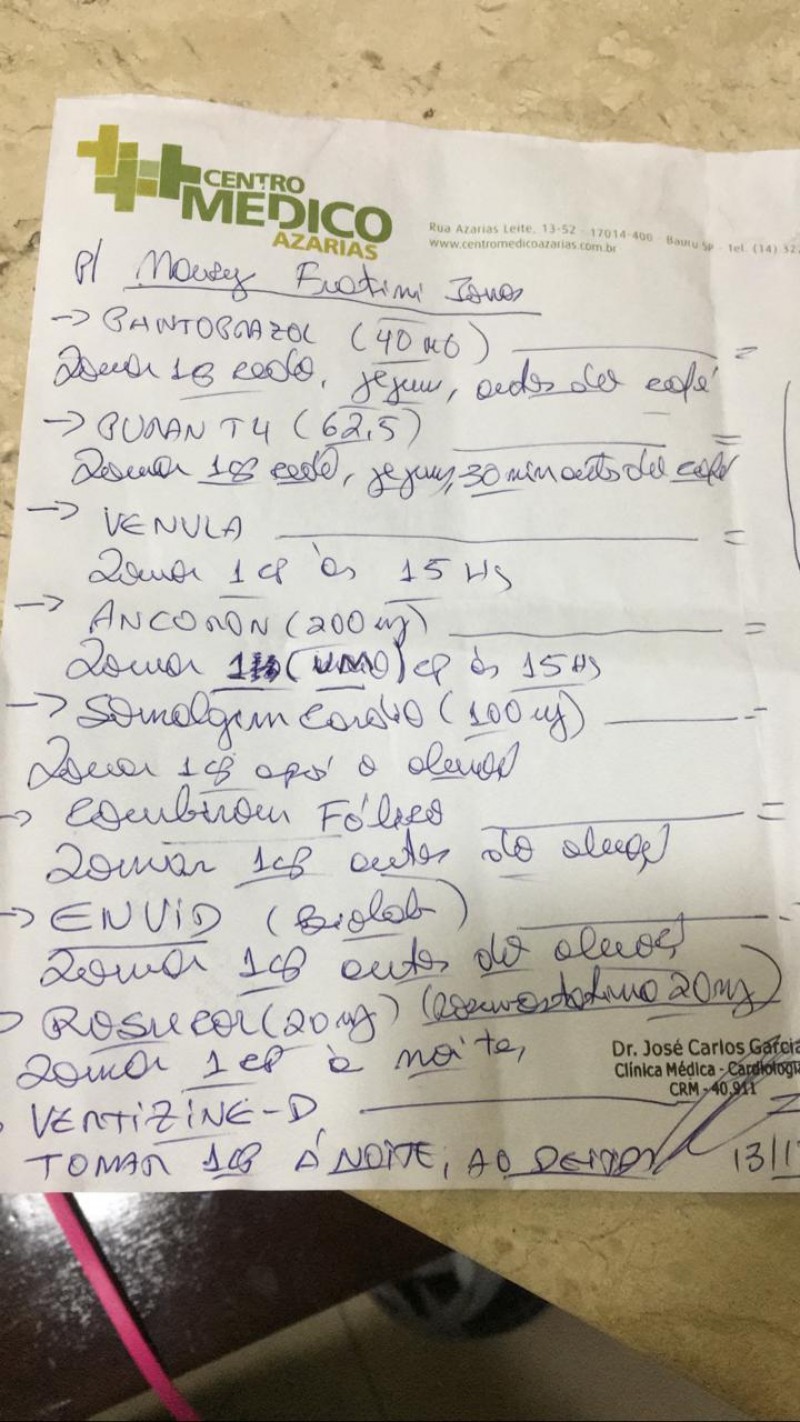 CENTRO
MEDICO
AZARIAS
Rua Azarias Leite, 13-52 - 17014-400 - Bauru SP - Tel. (14) 32
www.centromedicoazarias.com.br
p/
→ PANTOPRAZOL (40 MG) =
Tomar 1 cp cedo, jejum, antes do café
→ PURAN T4 (62,5) =
Tomar 1 cp cedo, jejum, 30 min antes do café
→ VENULA =
Tomar 1 cp às 15 Hs
→ ANCORON (200 mg) =
Tomar (UMO) cp às 15 Hs
→ Somalgim Cardio (100 mg) =
Tomar 1 cp após o almoço
→ Combiron Fólico =
Tomar 1 cp antes do almoço
→ ENVID (Biolab)
Tomar 1 cp antes do almoço
ROSUCOR (20 mg) (Rosuvastatina 20 mg)
Tomar 1 cp à noite,
Dr. José Carlos Garcia
Clínica Médica - Cardiologia
CRM - 40.911
VERTIZINE-D
TOMAR 1 cp À NOITE, AO DEITAR
13/1